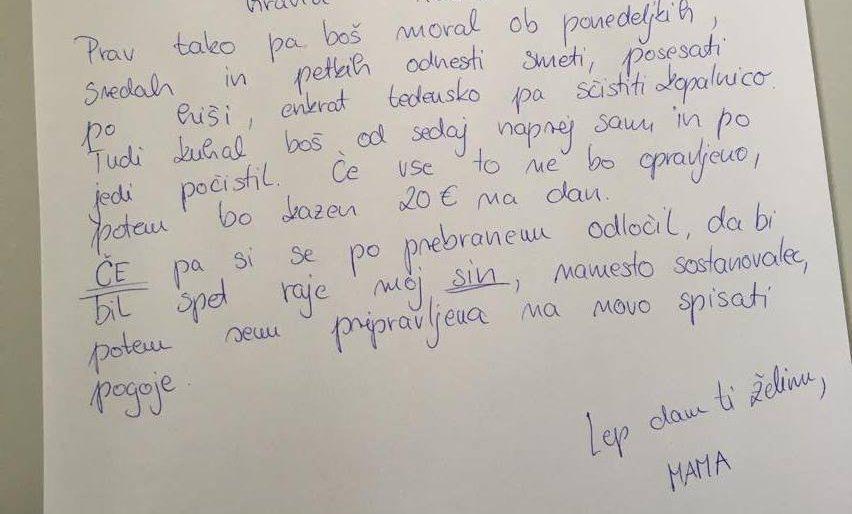 Prav tako pa boš moral ob ponedeljkih,
sredah in petkih odnesti smeti, posesati
po hiši, enkrat tedensko pa sčistiti kopalnico.
Tudi kuhal boš od sedaj naprej sam in po
jedi počistil. Če vse to ne bo opravljeno,
potem bo kazen 20 € na dan.
ČE pa si se po prebranem odločil, da bi
bil spet raje moj sin, namesto sostanovalec,
potem sem pripravljena na novo spisati
pogoje.
Lep dan ti želim,
MAMA